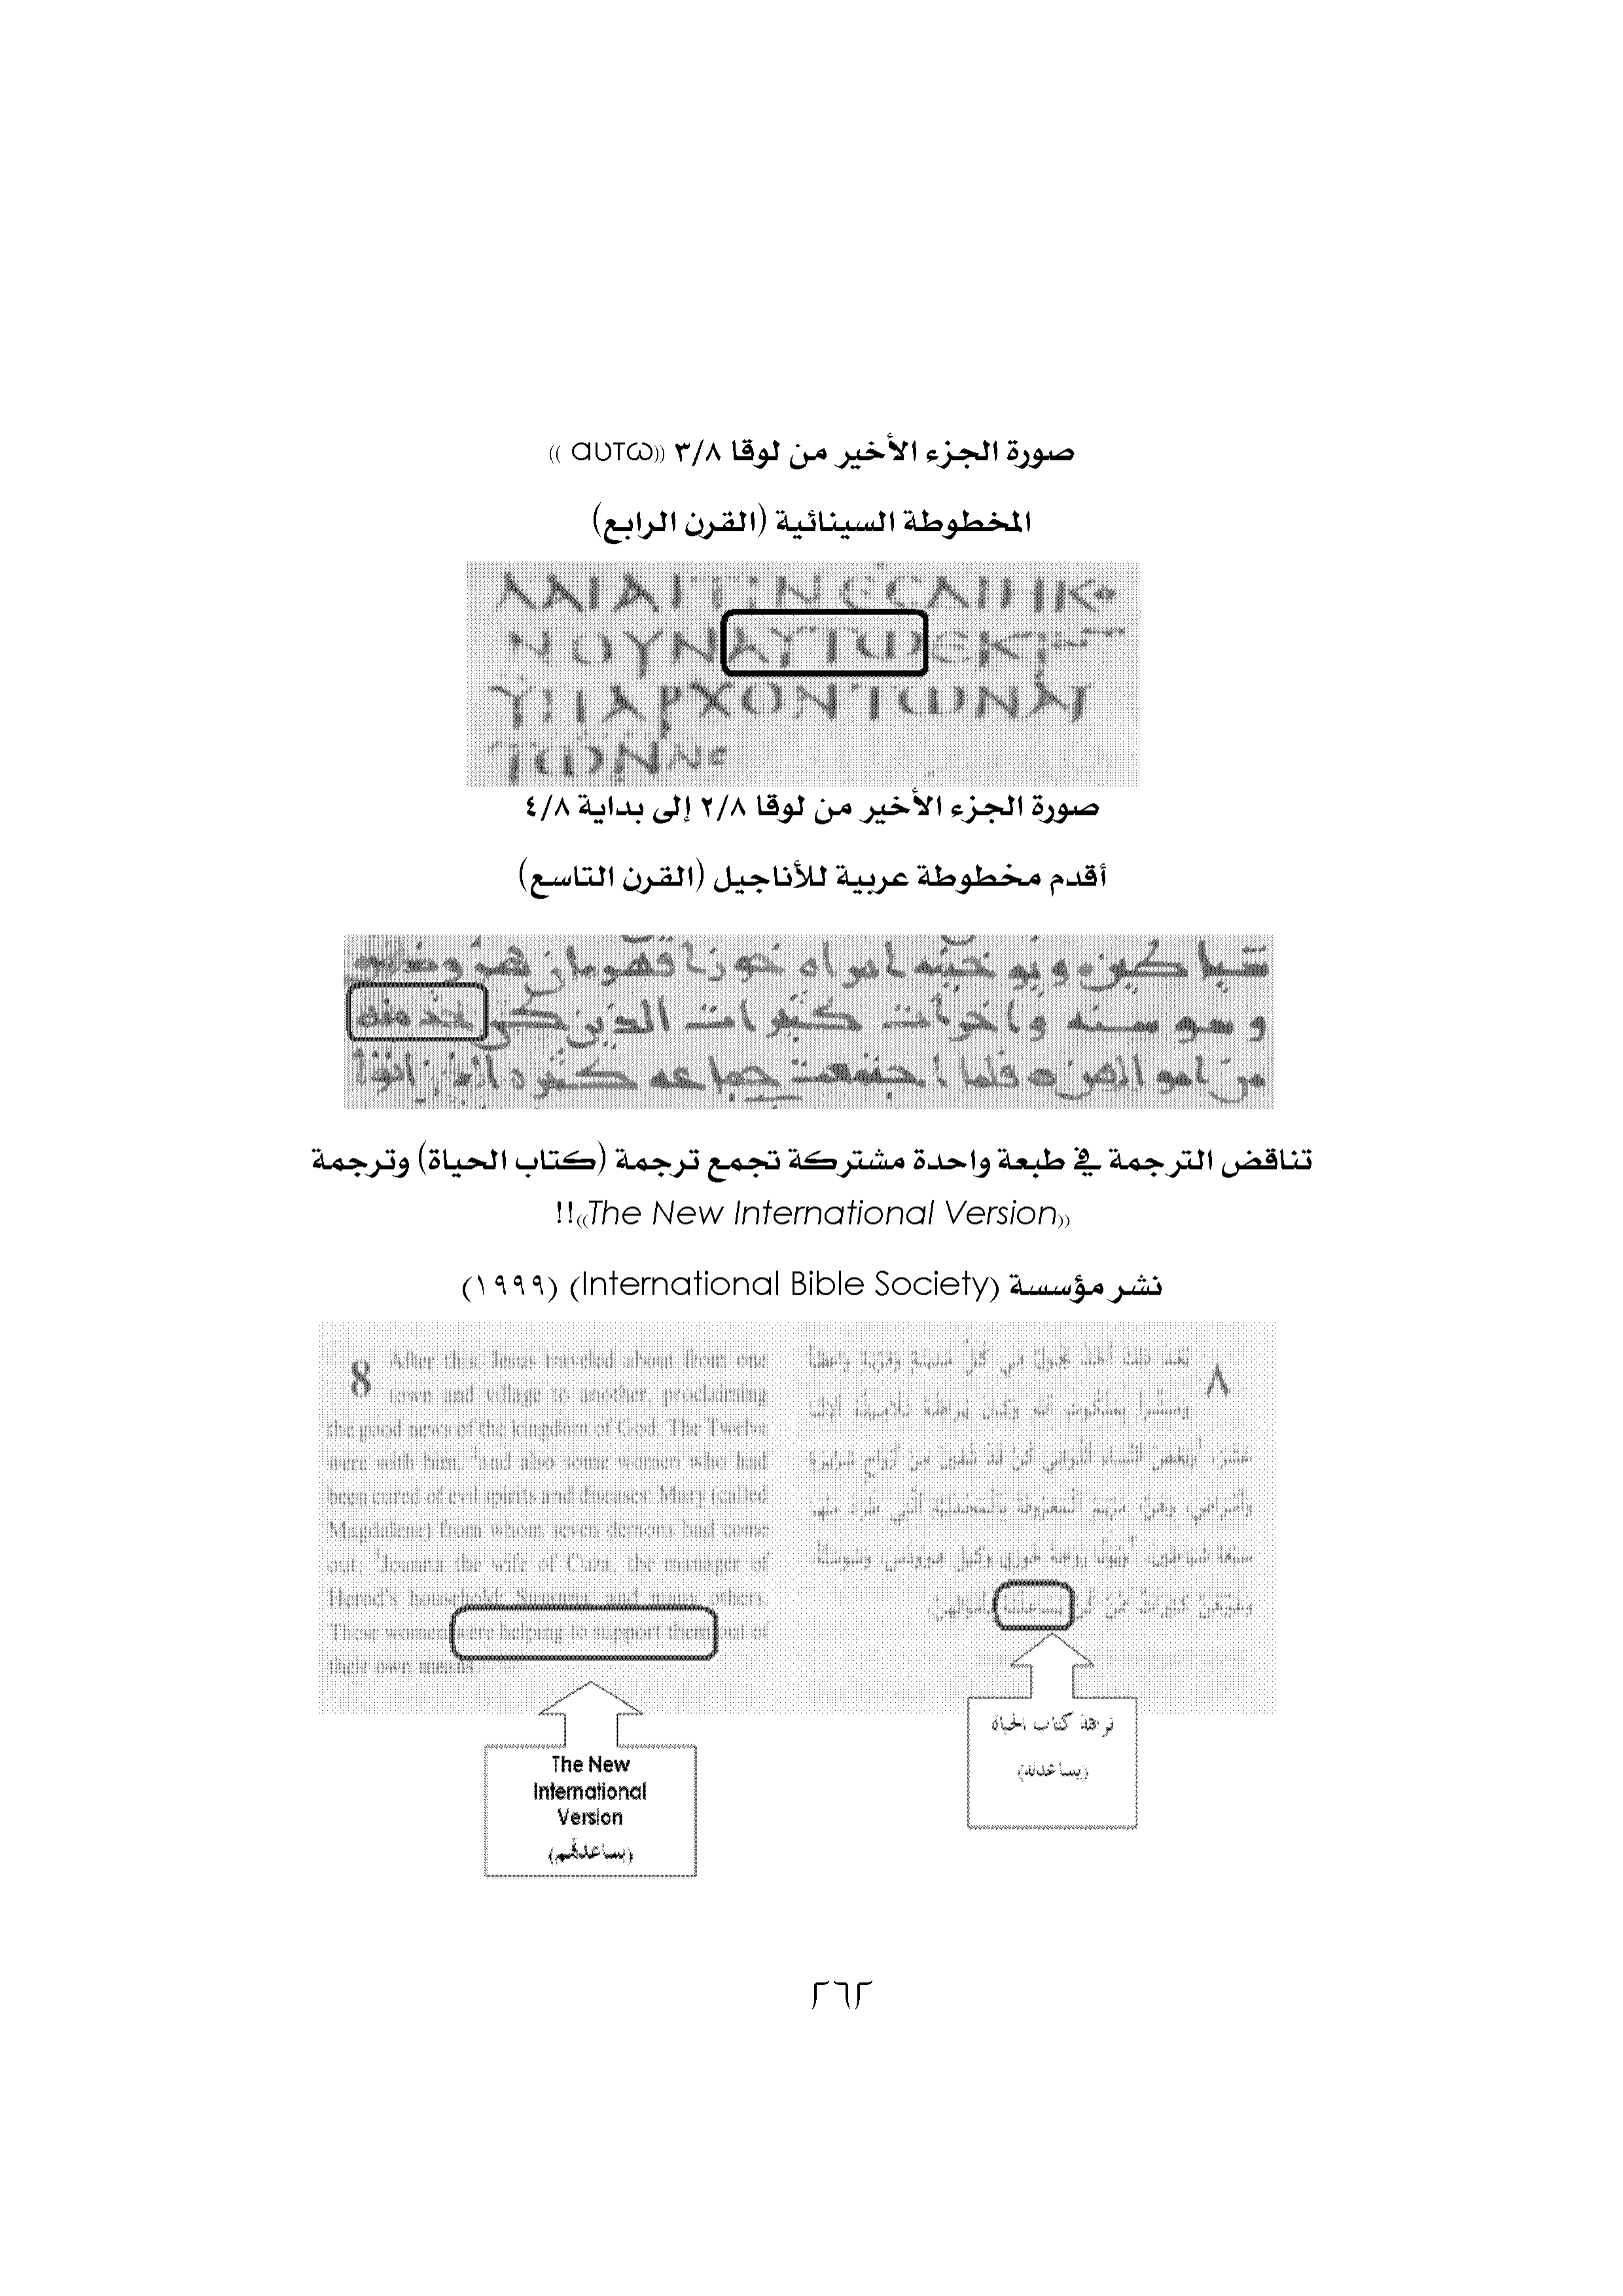 صورة الجزء الأخير من لوقا ٣/٨ ((αυτω ))
المخطوطة السينائية (القرن الرابع)
ΝΟΥΝΑΥΤΩΕΚ
ΥΠΑΡΧΟΝΤΩΝΑΥ
ΤΩΝ
صورة الجزء الأخير من لوقا ٢/٨ إلى بداية ٤/٨
أقدم مخطوطة عربية للأناجيل (القرن التاسع)
امراه خوزا قهرمان
وسوسنه واخرات كثيرات الذين كن يخدمنه
فلما اجتمعت جماعه كثيره
تناقض الترجمة في طبعة واحدة مشتركة تجمع ترجمة (كتاب الحياة) وترجمة
((The New International Version))!!
نشر مؤسسة (International Bible Society) (١٩٩٩)
8 After this, Jesus traveled about from one
town and village to another, proclaiming
the good news of the kingdom of God. The Twelve
were with him, 2and also some women who had
been cured of evil spirits and diseases: Mary (called
Magdalene) from whom seven demons had come
out; 3Joanna the wife of Cuza, the manager of
Herod's household; Susanna; and many others.
These women were helping to support them out of
their own means.
٨ بَعْدَ ذَلِكَ أَخَذَ يَجُولُ فِي كُلِّ مَدِينَةٍ وَقَرْيَةٍ وَاعِظاً
وَمُبَشِّراً بِمَلَكُوتِ اللهِ وَكَانَ يُرَافِقُهُ تَلَامِيذُهُ الاثْنَا
عَشَرَ، ٢وَبَعْضُ النِّسَاءِ اللَّوَاتِي كُنَّ قَدْ شُفِينَ مِنْ أَرْوَاحٍ شِرِّيرَةٍ
وَأَمْرَاضٍ، وَهُنَّ: مَرْيَمُ الْمَعْرُوفَةُ بِالْمَجْدَلِيَّةِ الَّتِي طُرِدَ مِنْهَا
سَبْعَةُ شَيَاطِينَ، ٣وَيُوَنَّا زَوْجَةُ خُوزِي وَكِيلِ هِيرُودُسَ، وَسُوسَنَّةُ،
وَغَيْرُهُنَّ كَثِيرَاتٌ مِمَّنْ كُنَّ يُسَاعِدْنَهُ بِأَمْوَالِهِنَّ.
ترجمة كتاب الحياة
(يساعدنه)
The New
International
Version
(يساعدنهم)
٢٦٢